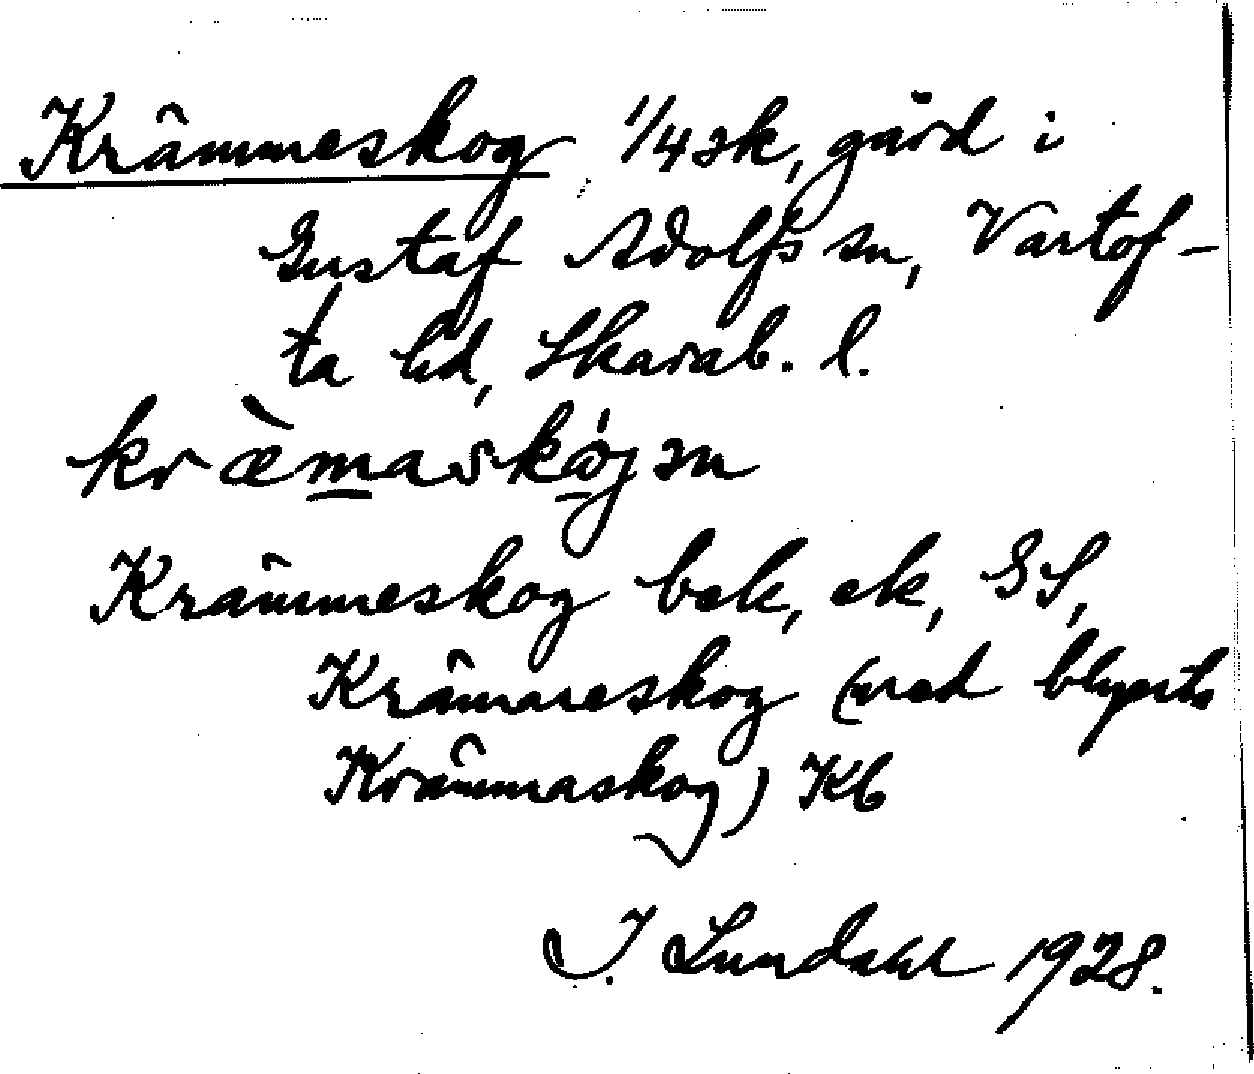 Krämmeskog 1/4 sk, gård i
Gustaf Adolfs sn, Vartof-
ta hd, Skarab. l.
kræ̀maskógen
Krämmeskog bek, ek, GS,
Krämareskog (med blyerts
Krämmaskog) Kb
I. Lundahl 1928.